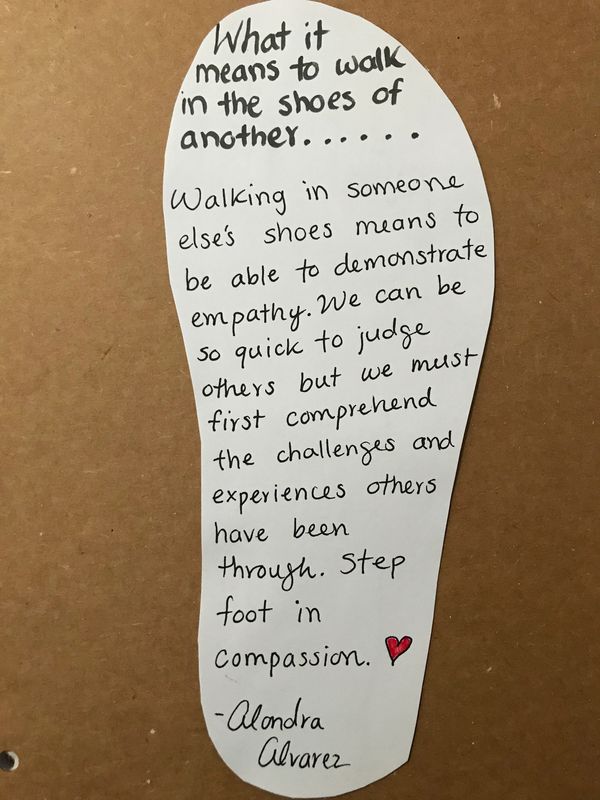 What it
means to walk
in the shoes of
another......
Walking in someone
else's shoes means to
be able to demonstrate
empathy. We can be
so quick to judge
others but we must
first comprehend
the challenges and
experiences others
have been
through. Step
foot in
compassion.
-Alondra
Alvarez